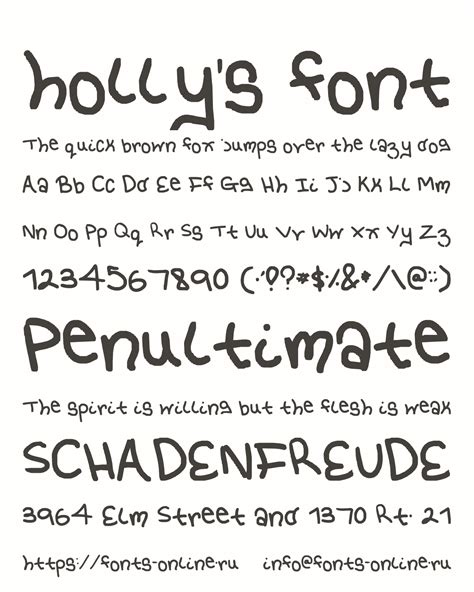 holly's font
The quick brown fox jumps over the lazy dog
Aa Bb Cc Dd Ee Ff Gg Hh Ii Jj Kk Ll Mm
Nn Oo Pp Qq Rr Ss Tt Uu Vv Ww Xx Yy Zz
1234567890 (.'!??#$%&*/\@:;)
Penultimate
The spirit is willing but the flesh is weak
SCHADENFREUDE
3964 Elm Street and 1370 Rt. 21
https://fonts-online.ru info@fonts-online.ru